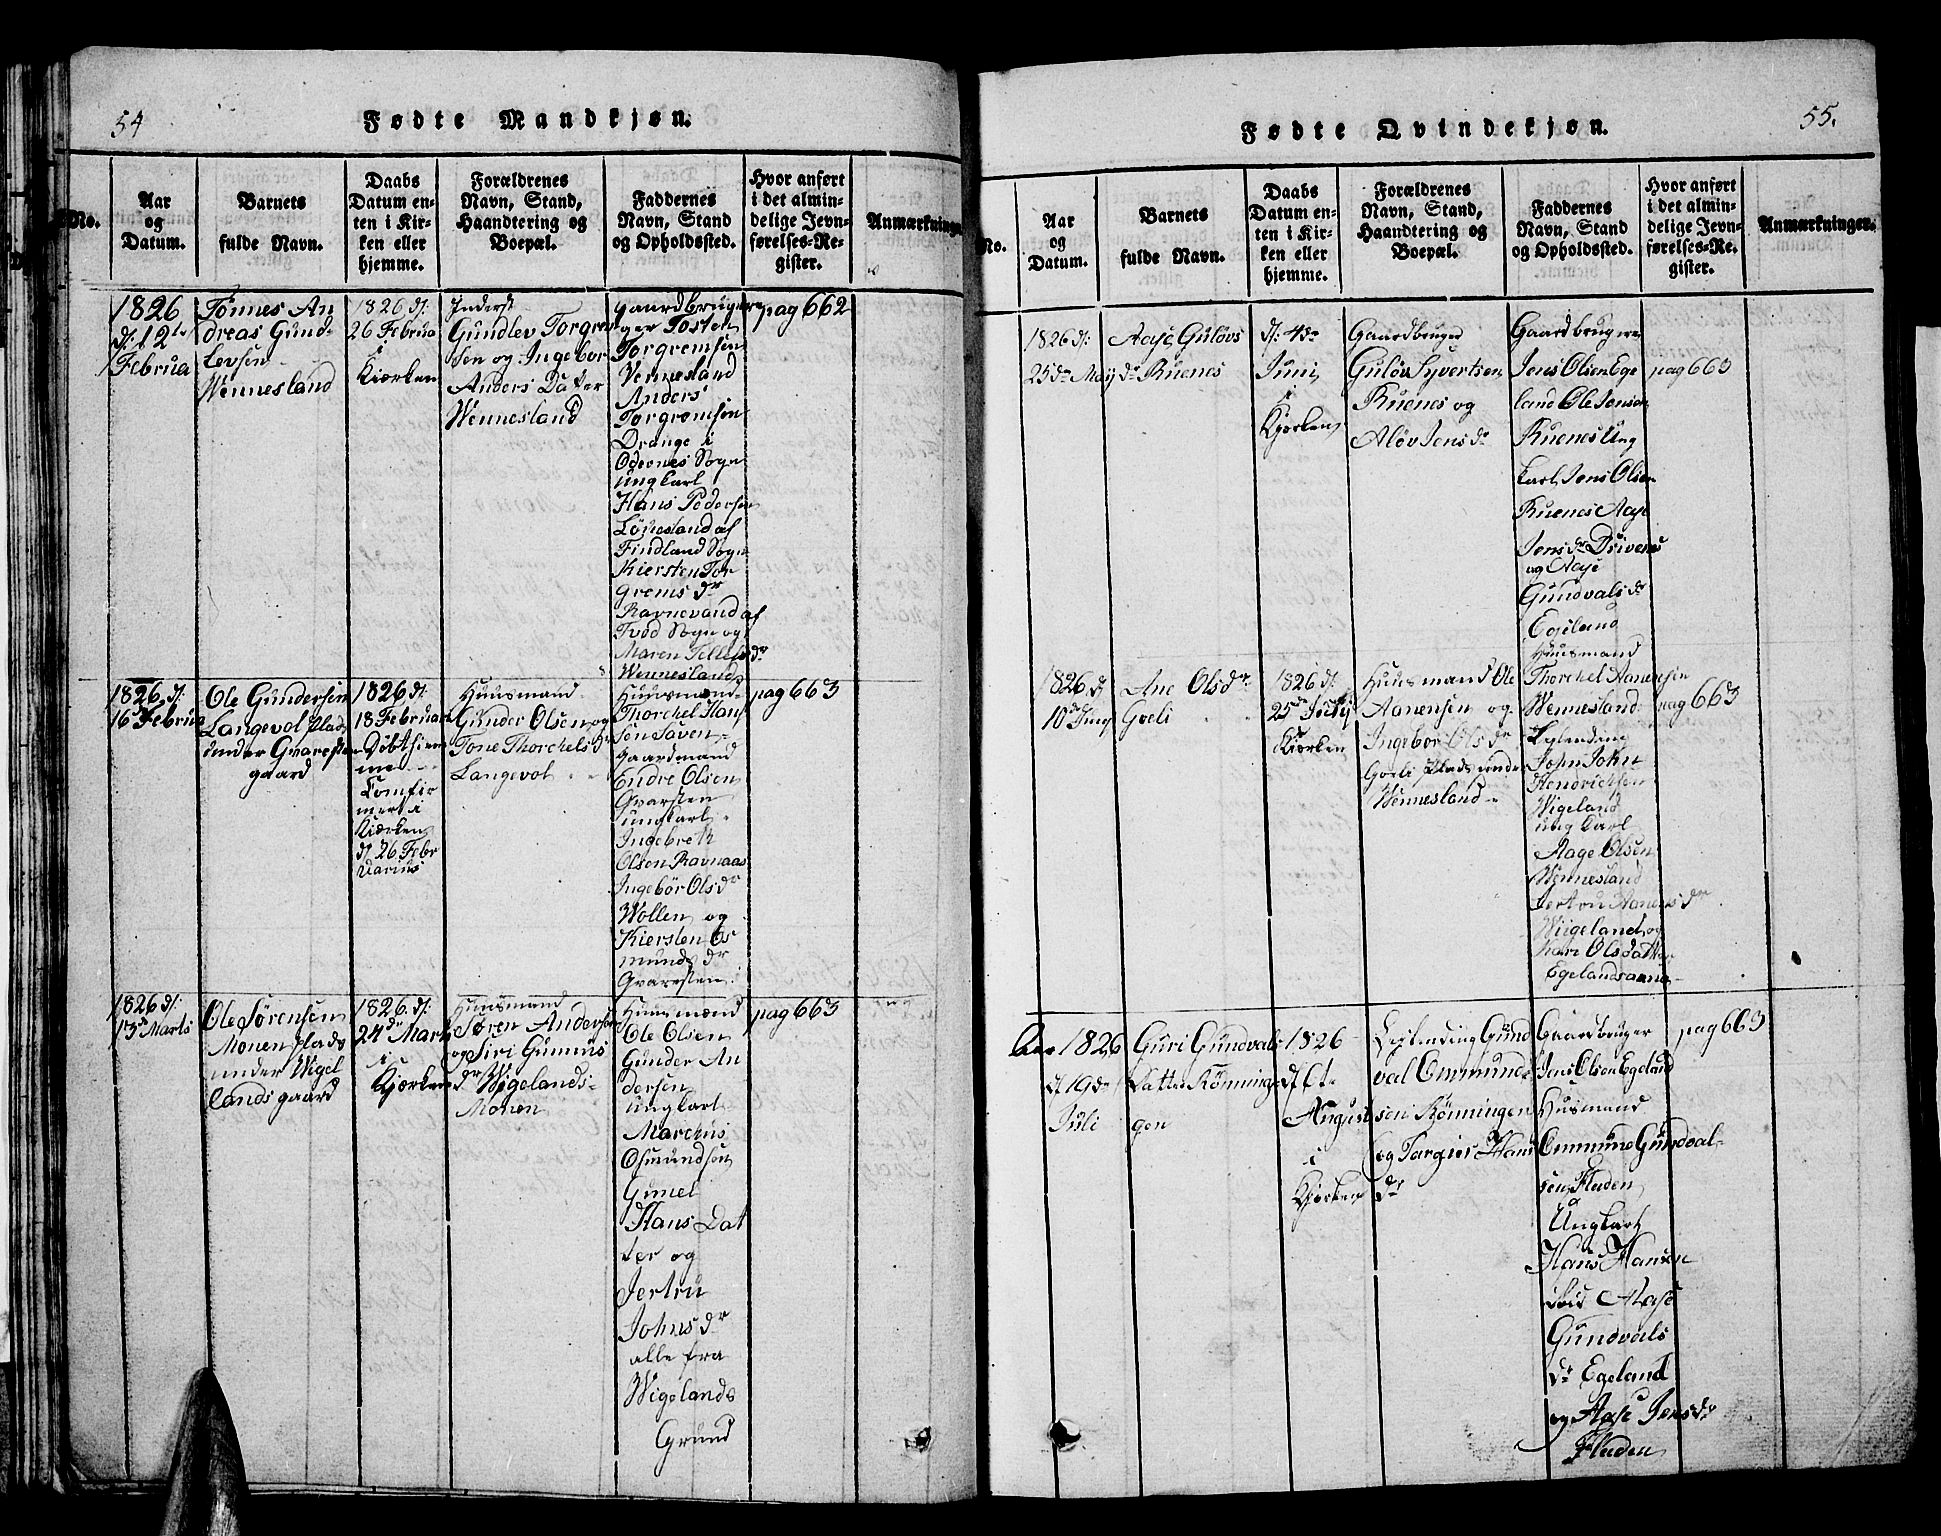 54
Fødte Mandkjøn.
No.
Aar
og
Datum.
Barnets
fulde Navn.
Daabs
Datum en-
ten i Kir-
ken eller
hjemme.
Forældrenes
Navn, Stand,
Haandtering og
Boepæl.
Faddernes
Navn, Stand
og Opholdssted.
Hvor anført
i det almin-
delige Jevn-
førelses-Re-
gister.
Anmærkninger
1826
d: 12te
Februa
Tønnes An
dreas Gund-
levsen
Wennesland
1826 d:
26 Februa
i
Kiørken
Inderst
Gundlev Torgrem
sen og Ingebor
Anders Dater
Wennesland
gaardbruger
ger Tosten
Torgremsen
Vennesland
Anders
Torgremsen
Drange i
Odernes Sogn
ungkarl
Hans Pedersen
Løhesland af
Findland Sogn
Kiersten Tor
grems dr
Ravnevand af
Tvød Sogn og
Maren Tellefs dr
Wennesland
pag 662
1826 d:
16de Februa
Ole Gundersen
Langevol plads
under Gvaresten
gaard
1826 d:
18 Februari
Døbt hiem
me
Comfir
mert i
Kiørken
d 26 Febr
varius
Huusmand
Gunder Olsen og
Tone Thorchels dr
Langevol
Huusmænd
Thorchel Han
sen Saven
Gaardmand
Endre Olsen
Gvarsten
ungkarl
Ingebreth
Olsen Ravnaas
Ingebør Ols dr
Wollen og
Kiersten Os
munds dr
Gvaresten
pag 663
1826 d:
13de Marts
Ole Sørensen
Monen plads
under Wigel
lands gaard
1826 d:
24de Marts
i
Kjørken
Huusmand
Søren Anderse
og Siri Gunnus
dr Wigelands-
Monen
Huusmænd
Ole Olsen
Gunder An
dersen
ungkarl
Marchus
Osmundsen
Gunel
Hans Dat
ter og
Jertru
Johns dr
alle fra
Wigelands
Grund
pag 663
55.
Fødte Qvindekjøn.
No.
Aar
og
Datum.
Barnets
fulde Navn.
Daabs
Datum en-
ten i Kir-
ken eller
hjemme.
Forældrenes
Navn, Stand,
Haandtering og
Boepæl.
Faddernes
Navn, Stand
og Opholdssted.
Hvor anført
i det almin-
delige Jevn-
førelses-Re-
gister.
Anmærkninger.
1826 d:
25de May
Aase Guløvs
dr Ruenes
d: 4de
Juni
i
Kjørken
Gaardbruger
Guløv Syvertsen
Ruenes og
Aløv Jens dr
Gaardbrugere
Jens Olsen Ege
land Ole Jensen
Ruenes Ung
karl Jens Olsen
Ruenes Aase
Jens dr Drivenes
og Aase
Gundvals dr
Egeland
pag 663
1826 d
10de Juny
Ane Ols dr
Goeli
1826 d:
25de July
i
Kiørken
Huusmand Ole
Aanensen og
Ingebor Ols dr
Goeli plads under
Wennesland
Huusmand
Thorchel Aanensen
Wennesland
Leylending
John John
Hendrichsen
Wigeland
ung karl
Aage Olsen
Wennesland
Jertru Aanens dr
Wiigeland og
Kari Olsdatter
Egelandsaana
pag 663
Aar 1826
d 19de
Juli
Guri Gundvals
Datter Rønning-
gen
1826
d 6te
August
i
Kjørken
Leylending Gund
val Ommund-
sen Rønningen
og Targier Hans
dr
Gaardbruger
Jens Olsen Egeland
Husmand
Ommund Gundval-
sen Fluden
Ungkarl
Hans Hansen
ibid Aase
Gundvals
dr Egeland
og Aase Jens dr
Fluden
pag 663